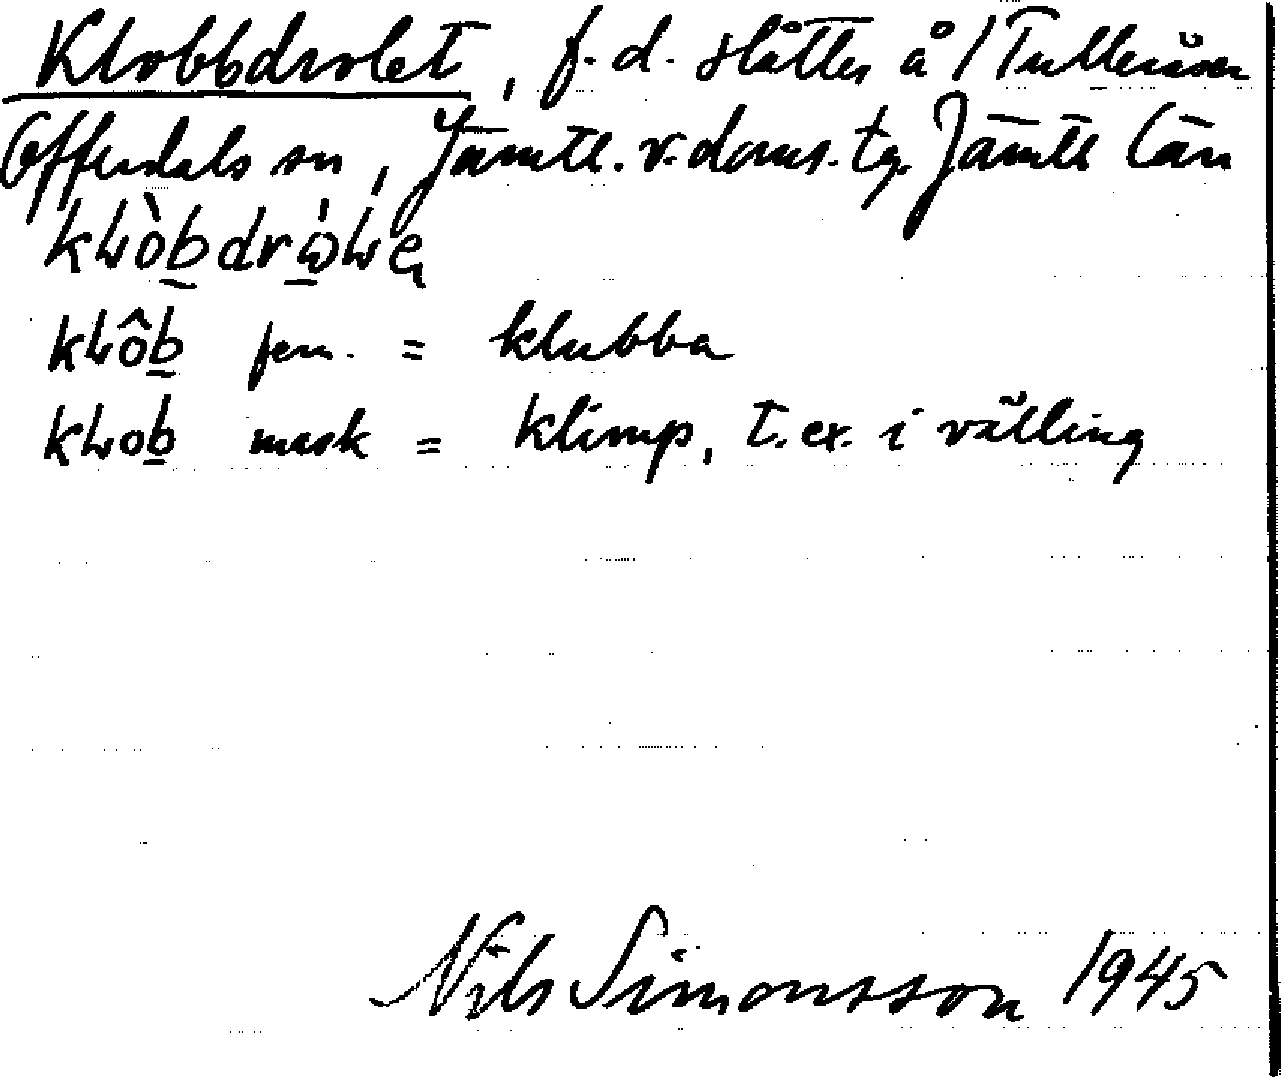 Klobbdrolet, f.d. slåtter å / Tulleråsen
Offerdals sn, Jämtl. v. doms. tg. Jämtl län
kĿòbdrωĿen
kĿôb fem. = klubba
kĿob mask = klimp, t.ex. i välling
Nils Simonsson 1945